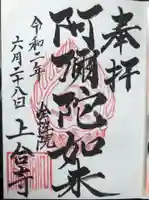 奉拝
阿彌陀如来
上台寺
令和二年
六月二十八日